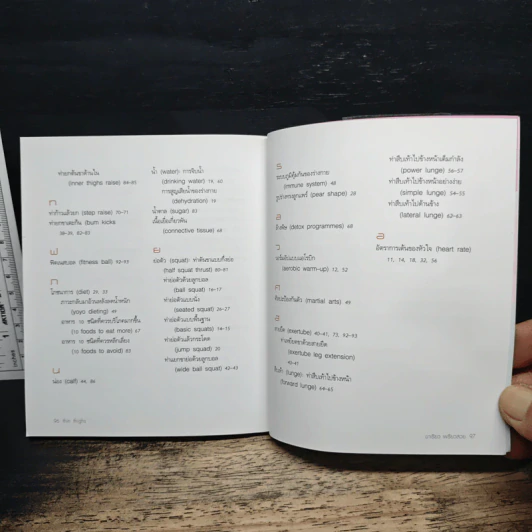 ท่ายกต้นขาด้านใน
(inner thighs raise) 64-65
ท่าก้าวแล้วยก (step raise) 70-71
ท่ายกขาเตะก้น (bum kicks
38-39, 62-65
ฟ
ฟิตเนสบอล (fitness ball) 92-93
โภชนาการ (diet)
(yoyo dieting) 69
อาหาร 10 ชนิดที่ควรบริโภคมากขึ้น
(10 foods to eat more) 67
อาหาร 10 ชนิดที่ควรหลีกเลี่ยง
(10 foods to avoid) 83
น
น่อง (calf)
น้ำ (water) การดื่มน้ำ
(drinking water)
การสูญเสียน้ำของร่างกาย
(dehydration)
น้ำตาล (sugar) 83
เนื้อเยื่อเกี่ยวพัน
(connective tissue) 68
ย
ย่อตัว (squat)
(half squat thrust) 80-81
ท่าย่อตัวด้วยลูกบอล
(ball squat) 16-17
ท่าย่อตัวแบบนั่ง
(seated squat) 26-27
ท่าย่อตัวแบบพื้นฐาน
(basic squats) 14-15
ท่าย่อตัวแล้วกระโดด
(jump squat) 30
ท่าแยกขาย่อด้วยลูกบอล
(wide ball squat) 42-43
96 the thighs
ร
ระบบภูมิคุ้มกันของร่างกาย
(immune system) 48
รูปร่างทรงลูกแพร์ (pear shape) 28
ล
ล้างพิษ (detox programmes) 68
ว
วอร์มอัพแบบแอโรบิก
(aerobic warm-up) 12, 52
ศ
ศิลปะป้องกันตัว (martial arts) 49
ส
สายยืด (exertube) 40-41, 73, 92-93
ท่าเหยียดขาด้วยสายยืด
(exertube leg extension)
40-41
สืบเท้า (lunge): ท่าสืบเท้าไปข้างหน้า
(forward lunge) 64-65
ท่าสืบเท้าไปข้างหน้าเต็มกำลัง
(power lunge) 56-57
ท่าสืบเท้าไปข้างหน้าอย่างง่าย
(simple lunge) 54-55
ท่าสืบเท้าไปด้านข้าง
(lateral lunge) 62-63
อ
อัตราการเต้นของหัวใจ (heart rate)
11, 14, 18, 32, 56
97